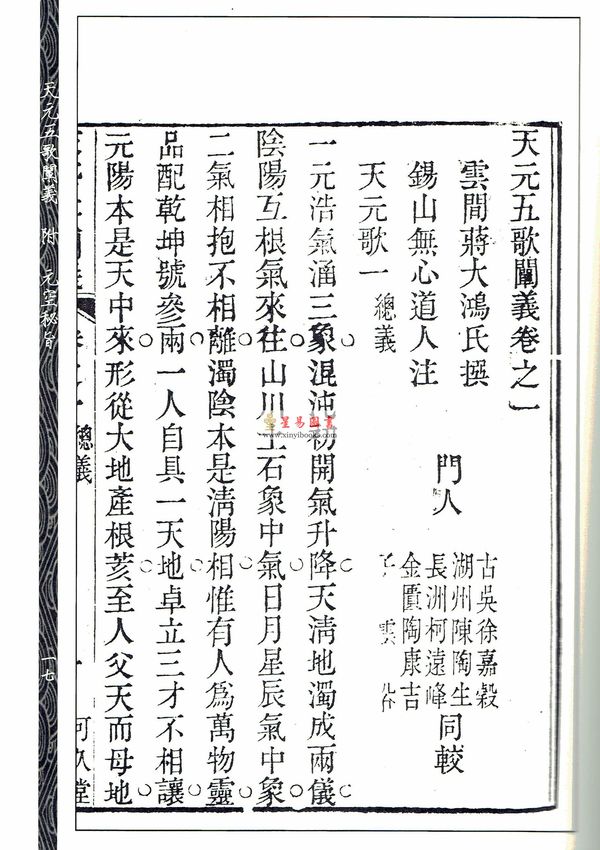 天元五歌闡義卷之一
雲間蔣大鴻氏撰
錫山無心道人注
門人
古吳徐嘉穀
湖州陳陶生
長洲柯遠峰
金匱陶康吉
子 雲
同較
天元歌一 總義
一元浩氣涵三象混沌初開氣升降天淸地濁成兩儀
陰陽互根氣來往山川土石象中氣日月星辰氣中象
二氣相抱不相離濁陰本是淸陽相惟有人爲萬物靈
品配乾坤號參兩一人自具一天地卓立三才不相讓
元陽本是天中來形從大地產根荄至人父天而母地
總義
一
可久堂
天元五歌闡義 附 元空秘旨
一七
星易图書
www.xinyibooks.com